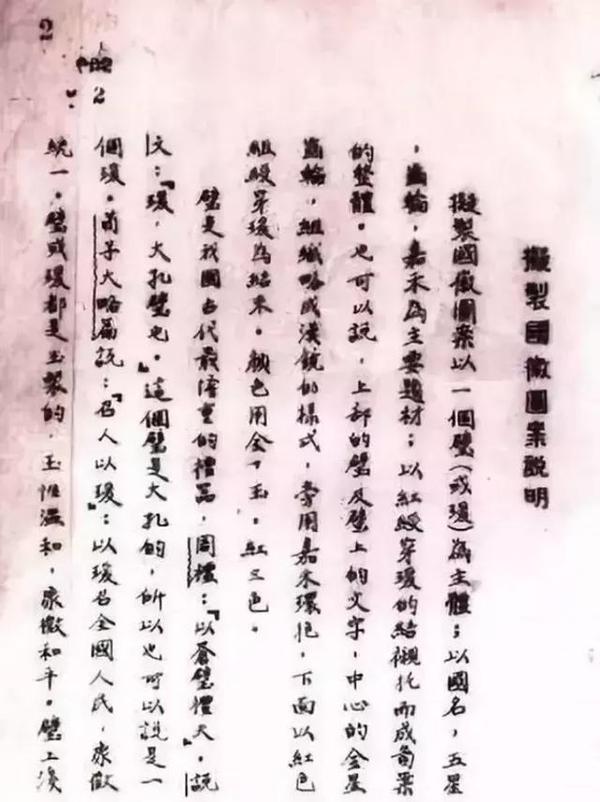 擬製國徽圖案説明
擬製國徽圖案以一個璧(或瑗)為主體；以國名，五星
，齒輪，嘉禾為主要題材；以紅綬穿瑗的結襯托而成圖案
的整體。也可以説，上部的璧及璧上的文字，中心的金星
齒輪，組織略成漢鏡的樣式，旁用嘉禾環抱，下面以紅色
組綬穿瑗為結束。顏色用金、玉、紅三色。
璧是我國古代最隆重的禮器，周禮：「以蒼璧禮天」，説
文：「瑗，大孔璧也。」這個璧是大孔的，所以也可以説是一
個瑗。荀子大略篇説：「召人以瑗」；以瑗召全國人民，象徵
統一。璧或瑗都是玉製的，玉性溫和，象徵和平。璧上淺
2
2